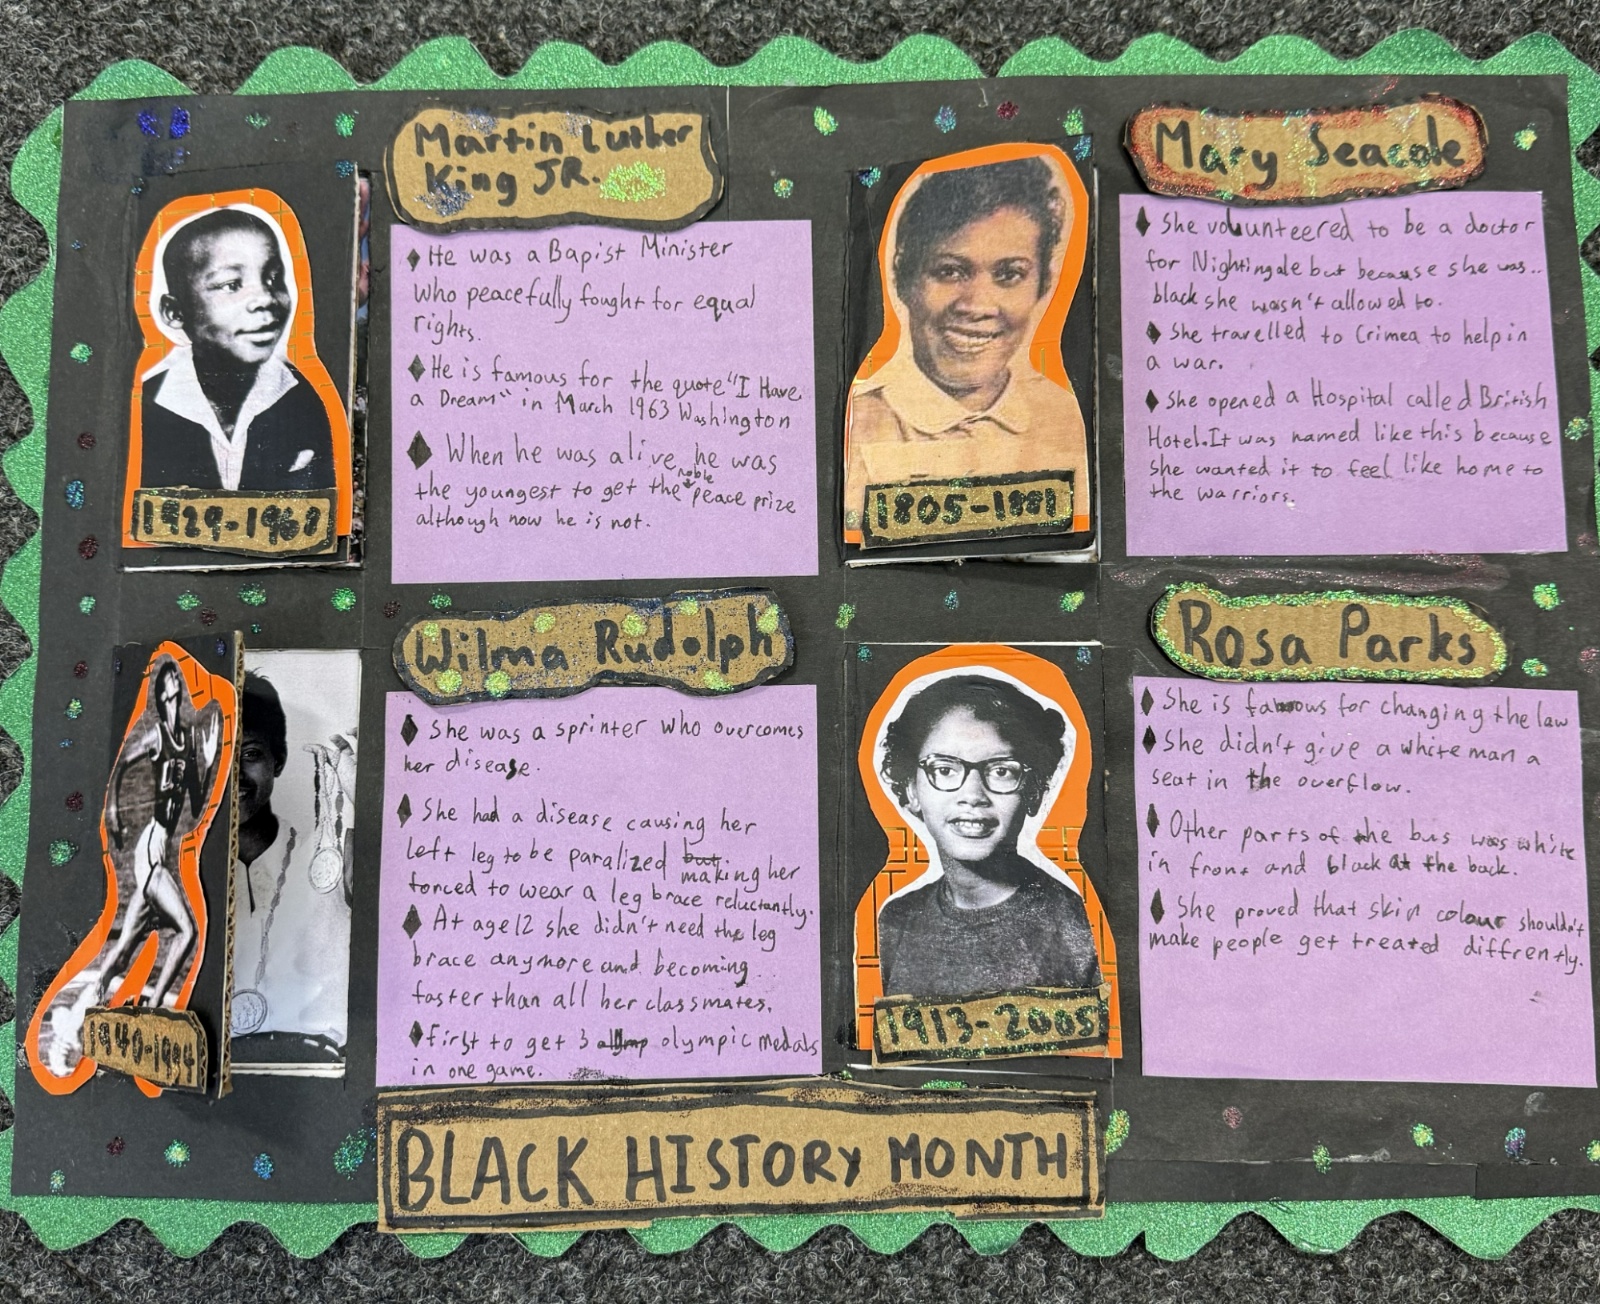 Martin Luther
King JR.
◆ He was a Bapist Minister
who peacefully fought for equal
rights.
◆ He is famous for the quote "I Have
a Dream" in March 1963 Washington
◆ When he was alive, he was
the youngest to get the noble peace prize
although now he is not.
1929-1968
Mary Seacole
◆ She volunteered to be a doctor
for Nightingale but because she was..
black she wasn't allowed to.
◆ She travelled to Crimea to help in
a war.
◆ She opened a Hospital called British
Hotel. It was named like this because
she wanted it to feel like home to
the warriors.
1805-1881
Wilma Rudolph
◆ She was a sprinter who overcomes
her disease.
◆ She had a disease causing her
left leg to be paralized but making her
forced to wear a leg brace reluctantly.
◆ At age 12 she didn't need the leg
brace anymore and becoming
faster than all her classmates.
◆ first to get 3 olympic medals
in one game.
1940-1994
Rosa Parks
◆ She is famous for changing the law
◆ She didn't give a white man a
seat in the overflow.
◆ Other parts of the bus was white
in front and black at the back.
◆ She proved that skin colour shouldn't
make people get treated diffrently.
1913-2005
BLACK HISTORY MONTH